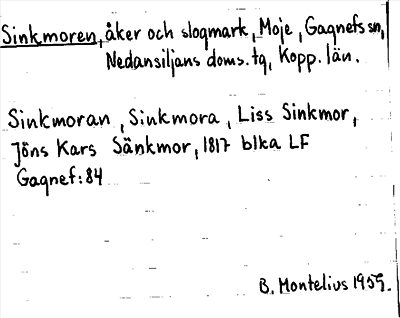 Sinkmoren, åker och slogmark, Moje, Gagnefs sn,
Nedansiljans doms. tg, Kopp. län.
Sinkmoran, Sinkmora, Liss Sinkmor,
Jöns Kars Sänkmor, 1817 blka LF
Gagnef: 84
B. Montelius 1959.